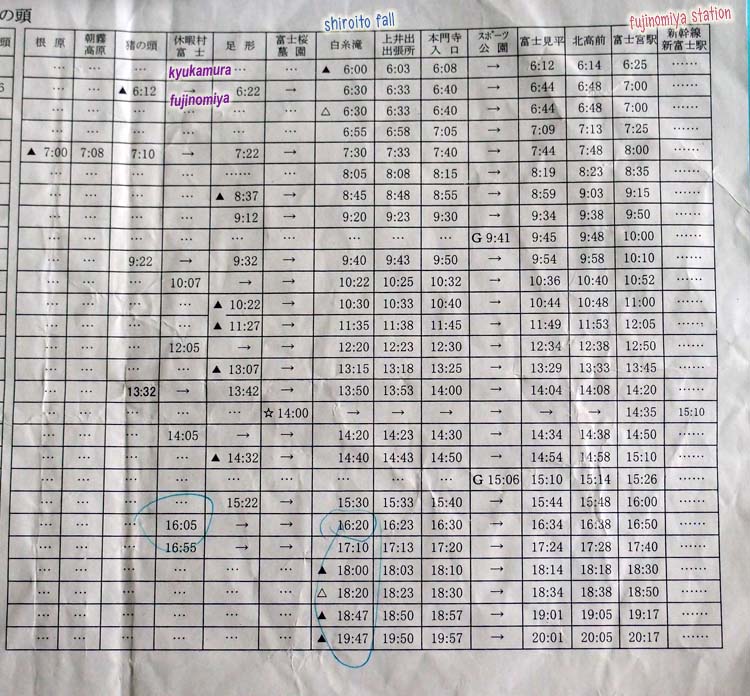 の頭
shiroito fall
fujinomiya station
頭 根原 朝霧高原 猪の頭 休暇村富士 足形 富士桜墓園 白糸滝 上井出出張所 本門寺入口 スポーツ公園 富士見平 北高前 富士宮駅 新幹線新富士駅
… … … kyukamura … … ▲ 6:00 6:03 6:08 → 6:12 6:14 6:25 ……
… … ▲ 6:12 → 6:22 → 6:30 6:33 6:40 → 6:44 6:48 7:00 ……
fujinomiya
… … … … … … △ 6:30 6:33 6:40 → 6:44 6:48 7:00 ……
… … … … … … 6:55 6:58 7:05 → 7:09 7:13 7:25 ……
▲ 7:00 7:08 7:10 → 7:22 → 7:30 7:33 7:40 → 7:44 7:48 8:00 ……
… … … … …… … 8:05 8:08 8:15 → 8:19 8:23 8:35 ……
… … … … ▲ 8:37 → 8:45 8:48 8:55 → 8:59 9:03 9:15 ……
… … … … 9:12 → 9:20 9:23 9:30 → 9:34 9:38 9:50 ……
… … … … … … … … … G 9:41 9:45 9:48 10:00 ……
… … 9:22 → 9:32 → 9:40 9:43 9:50 → 9:54 9:58 10:10 ……
… … … 10:07 → → 10:22 10:25 10:32 → 10:36 10:40 10:52 ……
… … … … ▲ 10:22 → 10:30 10:33 10:40 → 10:44 10:48 11:00 ……
… … … … ▲ 11:27 → 11:35 11:38 11:45 → 11:49 11:53 12:05 ……
… … … 12:05 → → 12:20 12:23 12:30 → 12:34 12:38 12:50 ……
… … … … ▲ 13:07 → 13:15 13:18 13:25 → 13:29 13:33 13:45 ……
… … 13:32 → 13:42 → 13:50 13:53 14:00 → 14:04 14:08 14:20 ……
… … … … … ☆ 14:00 → → → → → → 14:35 15:10
… … … 14:05 → → 14:20 14:23 14:30 → 14:34 14:38 14:50 ……
… … … … ▲ 14:32 → 14:40 14:43 14:50 → 14:54 14:58 15:10 ……
… … … … … … … … … G 15:06 15:10 15:14 15:26 ……
… … … … 15:22 → 15:30 15:33 15:40 → 15:44 15:48 16:00 ……
… … … 16:05 → → 16:20 16:23 16:30 → 16:34 16:38 16:50 ……
… … … 16:55 → → 17:10 17:13 17:20 → 17:24 17:28 17:40 ……
… … … … … … ▲ 18:00 18:03 18:10 → 18:14 18:18 18:30 ……
… … … … … … △ 18:20 18:23 18:30 → 18:34 18:38 18:50 ……
… … … … … … ▲ 18:47 18:50 18:57 → 19:01 19:05 19:17 ……
… … … … … … ▲ 19:47 19:50 19:57 → 20:01 20:05 20:17 ……